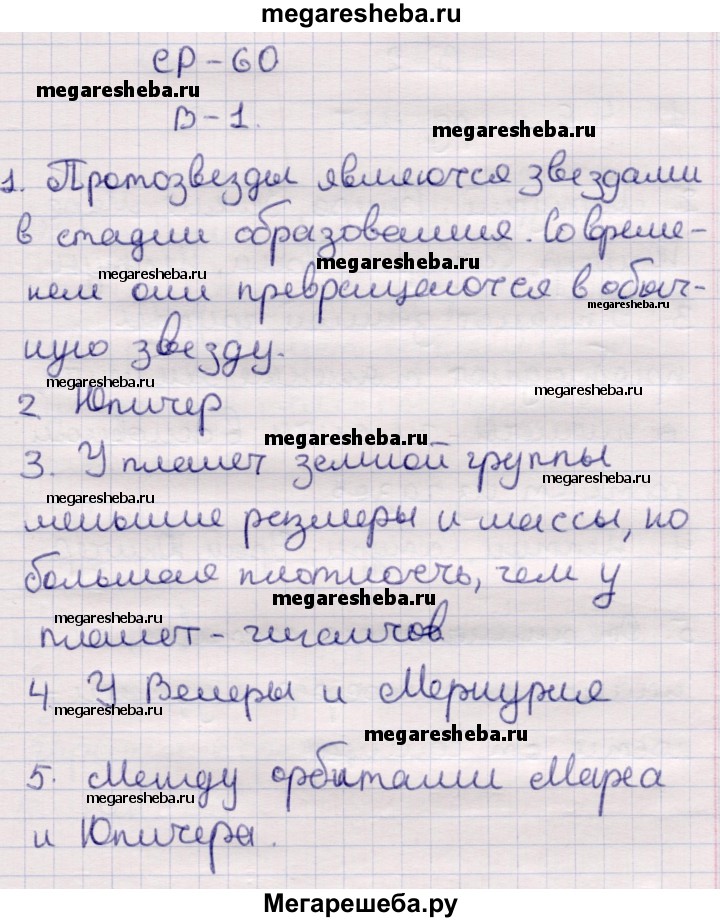 megaresheba.ru
СР-60
megaresheba.ru
В-1.
megaresheba.ru
1. Протозвезды являются звездами
в стадии образования. Со време-
megaresheba.ru
megaresheba.ru
нем они превращаются в обыч-
megaresheba.ru
ную звезду.
megaresheba.ru
megaresheba.ru
2 Юпитер
megaresheba.ru
3. У планет земной группы
megaresheba.ru
меньшие размеры и массы, но
большая плотность, чем у
megaresheba.ru
megaresheba.ru
планет-гигантов
4 У Венеры и Меркурия
megaresheba.ru
megaresheba.ru
5. Между орбитами Марса
megaresheba.ru
и Юпитера.
Мегарешеба.ру